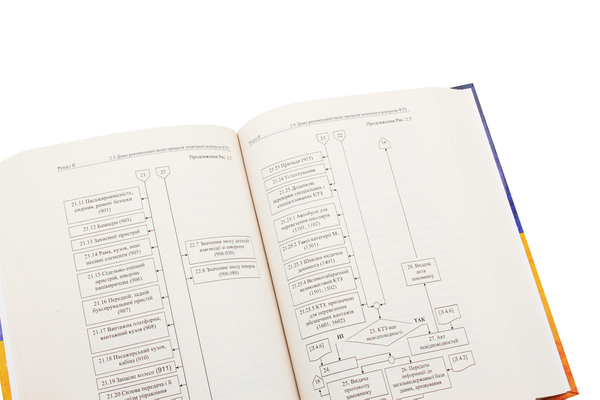 Розділ II
2.5 Деякі рекомендації щодо процесів технічного контролю КТЗ
Продовження Рис. 2.5
21
22
21.11 Пасажиромісність,
сидіння, ремені безпеки
(901)
21.12 Бампери (903)
21.13 Захисний пристрій
21.14 Рама, кузов, інші
несівні елементи (905)
21.15 Сідельно-зчіпний
пристрій, шворінь,
надшворнева (906)
21.16 Передній, задній
буксирувальний пристрій
(907)
21.17 Вантажна платформа,
вантажний кузов (908)
21.18 Пасажирський кузов,
кабіна (910)
21.19 Запасне колесо (911)
21.20 Силова передача і її
управління
22.7 Значення зносу деталей
22.8 Значення зносу шворня
(906.080)
Розділ II
2.5 Деякі рекомендації щодо процесів технічного контролю КТЗ
Продовження Рис. 2.5
21
22
16
21.23 Причепи (915)
21.24 Устаткування
21.25 Додаткові
перевірки спеціальних і
спеціалізованих КТЗ
21.25.1 Автобуси для
перевезення школярів
(1101, 1102)
21.25.2 Таксі категорії М1
(1301)
21.25.3 Швидка медична
допомога (1401)
21.25.4 Великогабаритний
великоваговий КТЗ
(1501, 1502)
21.25.5 КТЗ, призначені
для перевезення
небезпечних вантажів
(1601, 1602)
23. КТЗ має
невідповідності
НІ
ТАК
[Д 4.6]
[Д 4.6]
[Д 4.2]
24.
16
25. Видача
протоколу
замовнику
26. Передача
інформації до
загальнодержавної бази
даних, архівування
27. Акт
невідповідностей
28. Видача
акта
замовнику